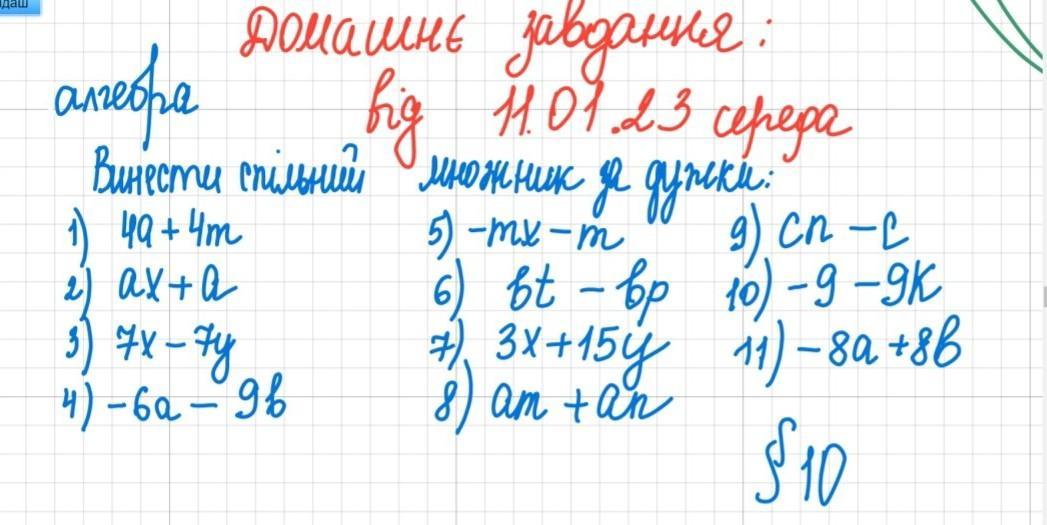 даш
Домашнє завдання:
алгебра від 11.01.23 середа
Винести спільний множник за дужки:
1) 4a + 4m 5) -mx - m 9) cn - c
2) ax + a 6) bt - bp 10) -9 - 9k
3) 7x - 7y 7) 3x + 15y 11) -8a + 8b
4) -6a - 9b 8) am + an
§ 10